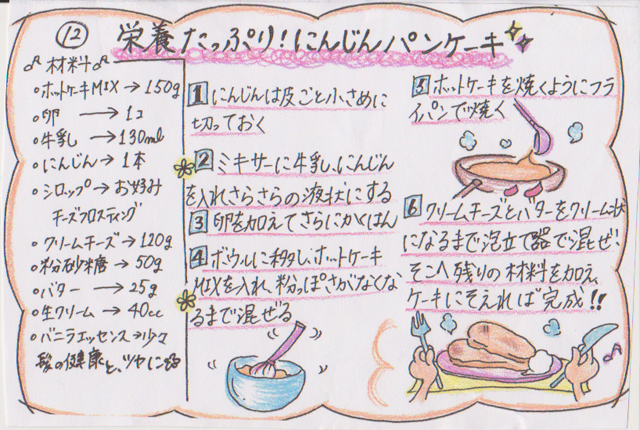 12
栄養たっぷり!にんじんパンケーキ
材料
・ホットケーキMIX→150g
・卵→1コ
・牛乳→130ml
・にんじん→1本
・シロップ→お好み
チーズフロスティング
・クリームチーズ→120g
・粉砂糖→50g
・バター→25g
・生クリーム→40cc
・バニラエッセンス→少々
髪の健康と、ツヤに
1 にんじんは皮ごと小さめに
切っておく
2 ミキサーに牛乳、にんじん
を入れさらさらの液状にする
3 卵を加えてさらにかくはん
4 ボウルに移し、ホットケーキ
MIXを入れ、粉っぽさがなくな
るまで混ぜる
5 ホットケーキを焼くようにフラ
イパンで焼く
6 クリームチーズとバターをクリーム状
になるまで泡立て器で混ぜ!
そこへ残りの材料を加え、
ケーキにそえれば完成!!